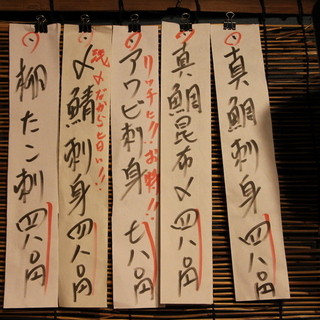 真鯛刺身 四八〇円
真鯛昆布〆 四八〇円
リッチに!!お特!!
アワビ刺身 七八〇円
〆鯖刺身 四八〇円
柳たこ刺 四八〇円